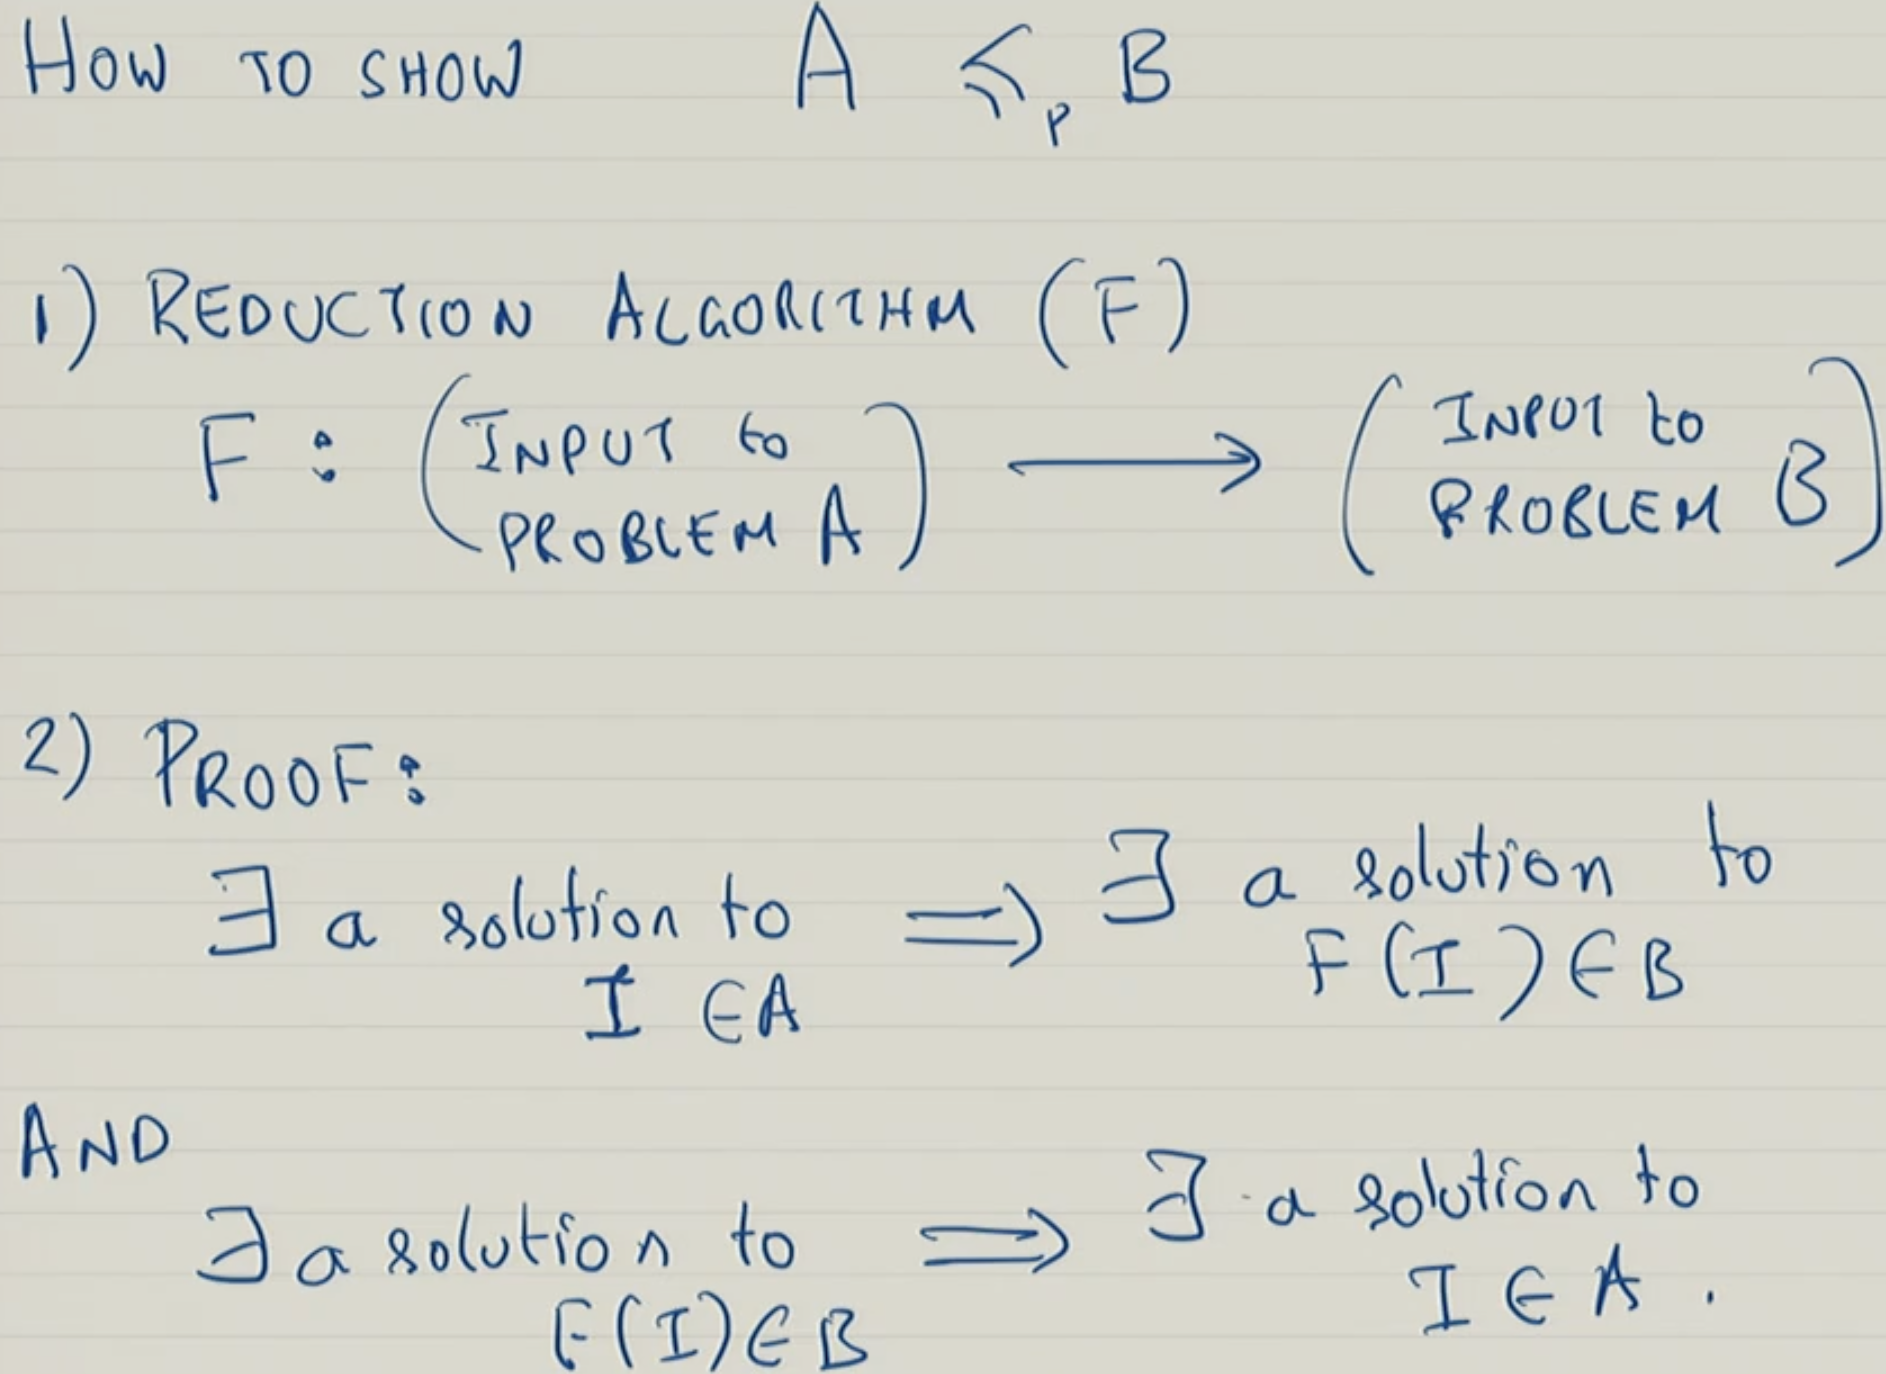 HOW TO SHOW A ≤p B
1) REDUCTION ALGORITHM (F)
F : (INPUT to PROBLEM A) ⟶ (INPUT to PROBLEM B)
2) PROOF:
∃ a solution to I ∈ A ⟹ ∃ a solution to F(I) ∈ B
AND
∃ a solution to F(I) ∈ B ⟹ ∃ a solution to I ∈ A.